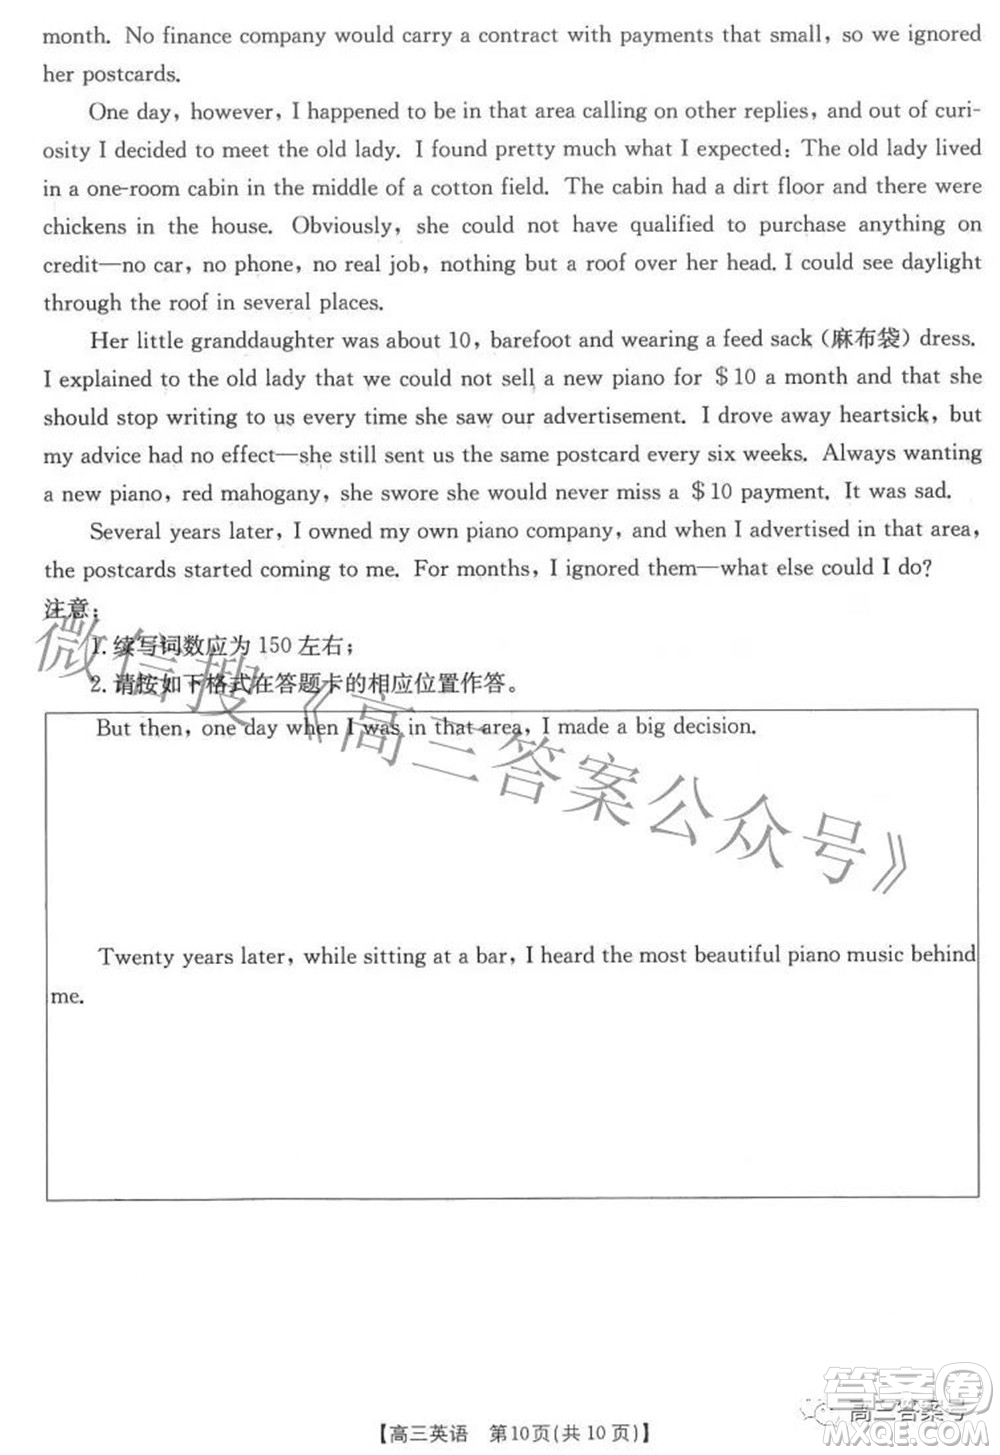 month. No finance company would carry a contract with payments that small, so we ignored
her postcards.
One day, however, I happened to be in that area calling on other replies, and out of curi-
osity I decided to meet the old lady. I found pretty much what I expected: The old lady lived
in a one-room cabin in the middle of a cotton field. The cabin had a dirt floor and there were
chickens in the house. Obviously, she could not have qualified to purchase anything on
credit—no car, no phone, no real job, nothing but a roof over her head. I could see daylight
through the roof in several places.
Her little granddaughter was about 10, barefoot and wearing a feed sack (麻布袋) dress.
I explained to the old lady that we could not sell a new piano for $10 a month and that she
should stop writing to us every time she saw our advertisement. I drove away heartsick, but
my advice had no effect—she still sent us the same postcard every six weeks. Always wanting
a new piano, red mahogany, she swore she would never miss a $10 payment. It was sad.
Several years later, I owned my own piano company, and when I advertised in that area,
the postcards started coming to me. For months, I ignored them—what else could I do?
注意:
1. 续写词数应为 150 左右;
2. 请按如下格式在答题卡的相应位置作答。
But then, one day when I was in that area, I made a big decision.
Twenty years later, while sitting at a bar, I heard the most beautiful piano music behind
me.
微信搜《高三答案公众号》
【高三英语 第10页(共 10 页)】
高三答案号
答案圈
MXQE.COM